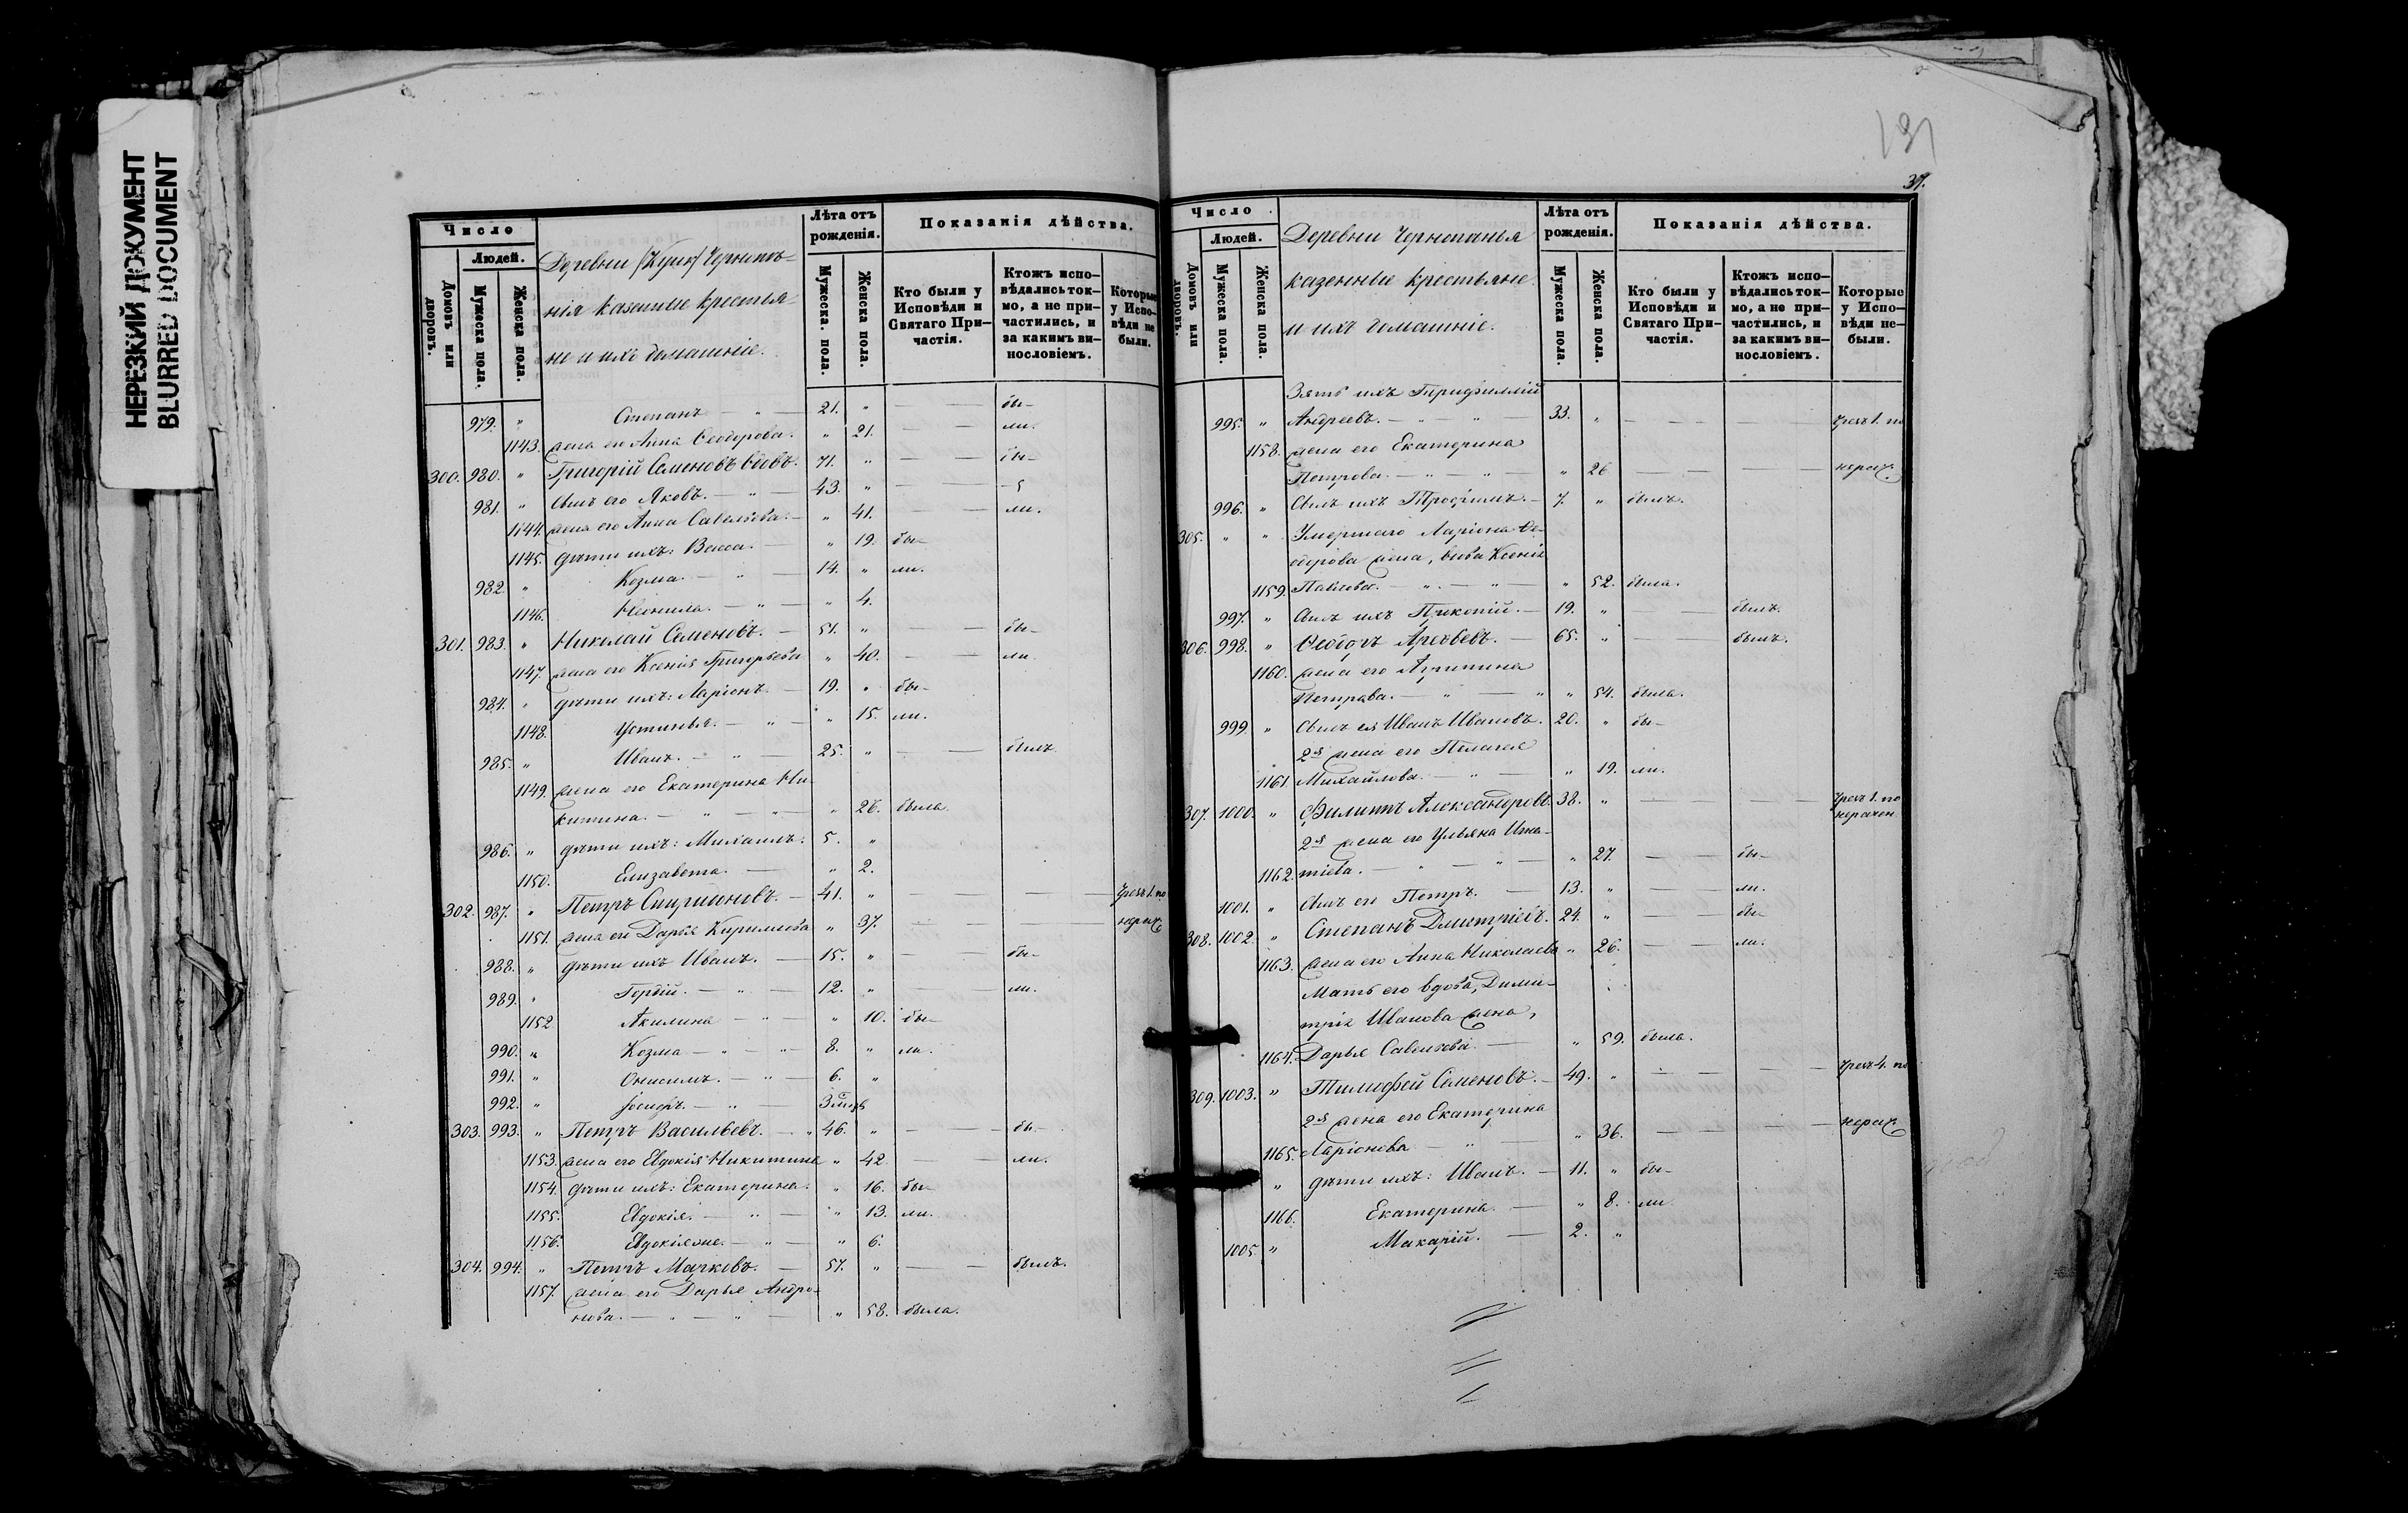 НЕРЕЗКИЙ ДОКУМЕНТ
BLURRED DOCUMENT
Число
Людей.
Домовъ или дворовъ.
Мужеска пола.
Женска пола.
Деревни
казенные крестья-
не и ихъ домашніе.
Лѣта отъ рожденія.
Мужеска. пола.
Женска пола.
Показанія дѣйства.
Кто были у Исповѣди и Святаго При-частія.
Ктожъ испо-вѣдались ток-мо, а не при-частились, и за какимъ ви-нословіемъ.
Которые у Испо-вѣди не были.
979. " Степанъ — " — 21. " — — бы-
1143. жена его Анна Ѳеодорова. " 21. — — ли.
300. 980. " Григорій Семеновъ вдовъ. 71. " — — бы-
981. " Сынъ его Яковъ. — " — 43. " — —
1144. жена его Анна Савельева. — " 41. — ли.
1145. дѣти ихъ: Васса. — " 19. бы-
982. " Козма. — " — 14. " ли.
1146. Неонила. — " — " 4.
301. 983. " Николай Семеновъ. — 51. " — — бы-
1147. жена его Ксенія Григорьева " 40. — — ли
984. " дѣти ихъ: Ларіонъ. — 19. " бы-
1148. Устинья. — " — " 15. ли.
985. " Иванъ. — " — 25. " — — былъ
1149. жена его Екатерина Ни-
китина. — " — " — " 26. была
986. " дѣти ихъ: Михаилъ. 5. "
1150. Елизавета. — " 2.
302. 987. " Петръ Спиридоновъ. — 41. " — — — — чрезъ 1. по
1151. жена его Дарья Кирилова " 37. — — — нерач.
988. " дѣти ихъ Иванъ. — 15. " — — бы-
989. " Гордій. — " — 12. " — — ли.
1152 Акилина — " — " 10. бы-
990. " Козма — " — " — 8. " ли.
991. " Онисимъ. — " — 6. "
992. " Іосифъ. — " —
303. 993. " Петръ Васильевъ. — " 46. " — — бы-
1153. жена его Евдокія Никитина " 42 — ли.
1154. дѣти ихъ: Екатерина. " 16. бы-
1155. Евдокія. — " — " 13. ли.
1156. Евдокія же. — " — " 6.
304. 994. " Петръ Марковъ. — 57. " — — былъ.
1157. жена его Дарья Андро-
нова. — " — " — " 58. была.
37.
Число
Людей.
Домовъ или дворовъ.
Мужеска пола.
Женска пола.
Деревни
казенные крестьяне
и ихъ домашніе.
Лѣта отъ рожденія.
Мужеска пола.
Женска пола.
Показанія дѣйства.
Кто были у Исповѣди и Святаго При-частія.
Ктожъ испо-вѣдались ток-мо, а не при-частились, и за какимъ ви-нословіемъ.
Которые у Испо-вѣди не-были.
Зять ихъ
995. " Андреевъ. — " — 33. " — — — чрезъ 1. по
1158. жена его Екатерина
Петрова. — " — " — " 26 — — — нерач.
996. " Сынъ ихъ Трофимъ. — 7. " былъ.
305. " " Умершаго Ларіона Ѳе-
одорова жена, вдова Ксенія
1159. Павлова. — " — " — " 52. была.
997. " Сынъ ихъ Прокопій. — 19. " — — былъ.
306. 998. " Ѳеодоръ Арефьевъ. — 65. " — — былъ.
1160. жена его Агрипина
Петрова. — " — " " 54. была.
999 " Сынъ ея Иванъ Ивановъ. 20. " бы-
2я жена его Пелагея
1161. Михайлова. — " — " 19. ли.
307. 1000. " Филиппъ Александровъ. 38. " — — — чрезъ 1. по
нерачен
2я жена его Ульяна Игна-
1162. тіева. — " — " — " 27. — — бы-
1001. " Сынъ его Петръ. — 13. " — — ли.
308. 1002. " Степанъ Дмитріевъ. 24. " — — бы-
1163. жена его Анна Николаева " 26. — — ли.
Мать его вдова, Дими-
трія Иванова жена,
1164. Дарья Савельева. — " 59. была.
309. 1003. " Тимофей Семеновъ. — 49. " — — — — чрезъ 4. по
2я жена его Екатерина
1165. Ларіонова — " — " 36. — — — нерач.
" дѣти ихъ: Иванъ. — 11. " бы-
1166. Екатерина. — " 8. ли
1005. " Макарій. — 2. "